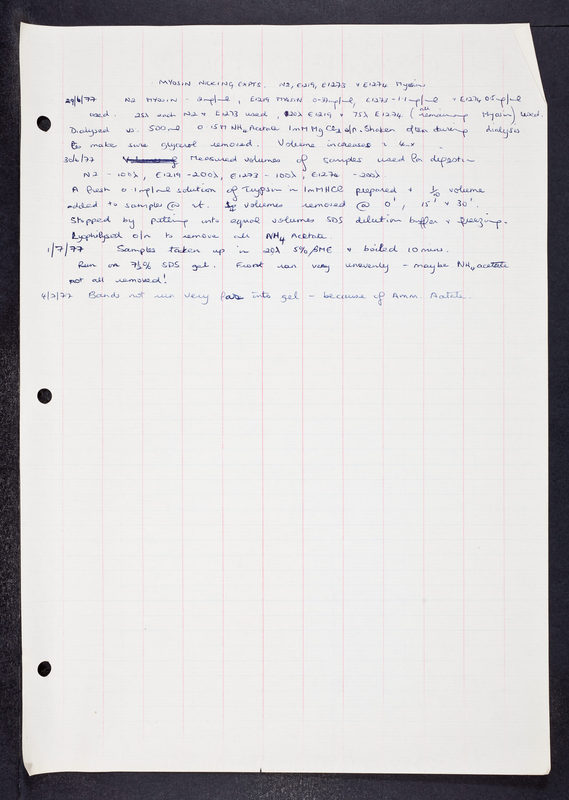 MYOSIN NICKING EXPTS. N2, E1219, E1273 + E1274 Myosin
29/6/77 N2 MYOSIN - 2mg/ml, E1219 MYOSIN 0.77mg/ml, E1273 - 1.1mg/ml + E1274 0.5mg/ml
used. 25λ each N2 + E1273 used, 120λ E1219 + 75λ E1274. (remaining all Myosin) used.
Dialysed vs. 500ml 0.15M NH4 Acetate 1mM MgCl2 o/n. Shaken often during dialysis
to make sure glycerol removed. Volume increases ≈ 4x.
30/6/77 Measured volumes of samples used for digestion
N2 - 100λ, E1219 - 200λ, E1273 - 100λ, E1274 - 200λ
A fresh 0.1mg/ml solution of Trypsin in 1mM HCl prepared + volume
added to samples @ rt. volumes removed @ 0', 15' + 30'.
Stopped by putting into equal volumes SDS dilution buffer + freezing.
Lyophilysed o/n to remove all NH4 Acetate.
1/7/77 Samples taken up in 20λ 5% βME + boiled 10 mins.
Run on 7½% SDS gel. Front ran very unevenly - maybe NH4 acetate
not all removed!
4/7/77 Bands not run very far into gel - because of Amm. Acetate.